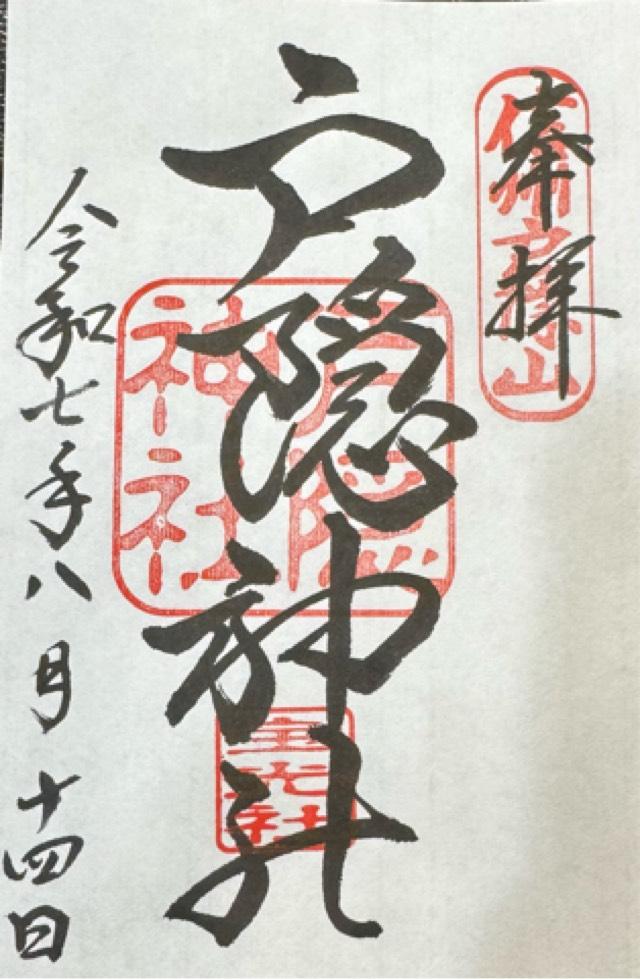 奉拝
信州戸隠山
戸隠神社
戸隠
神社
宝光社
令和七年八月十四日